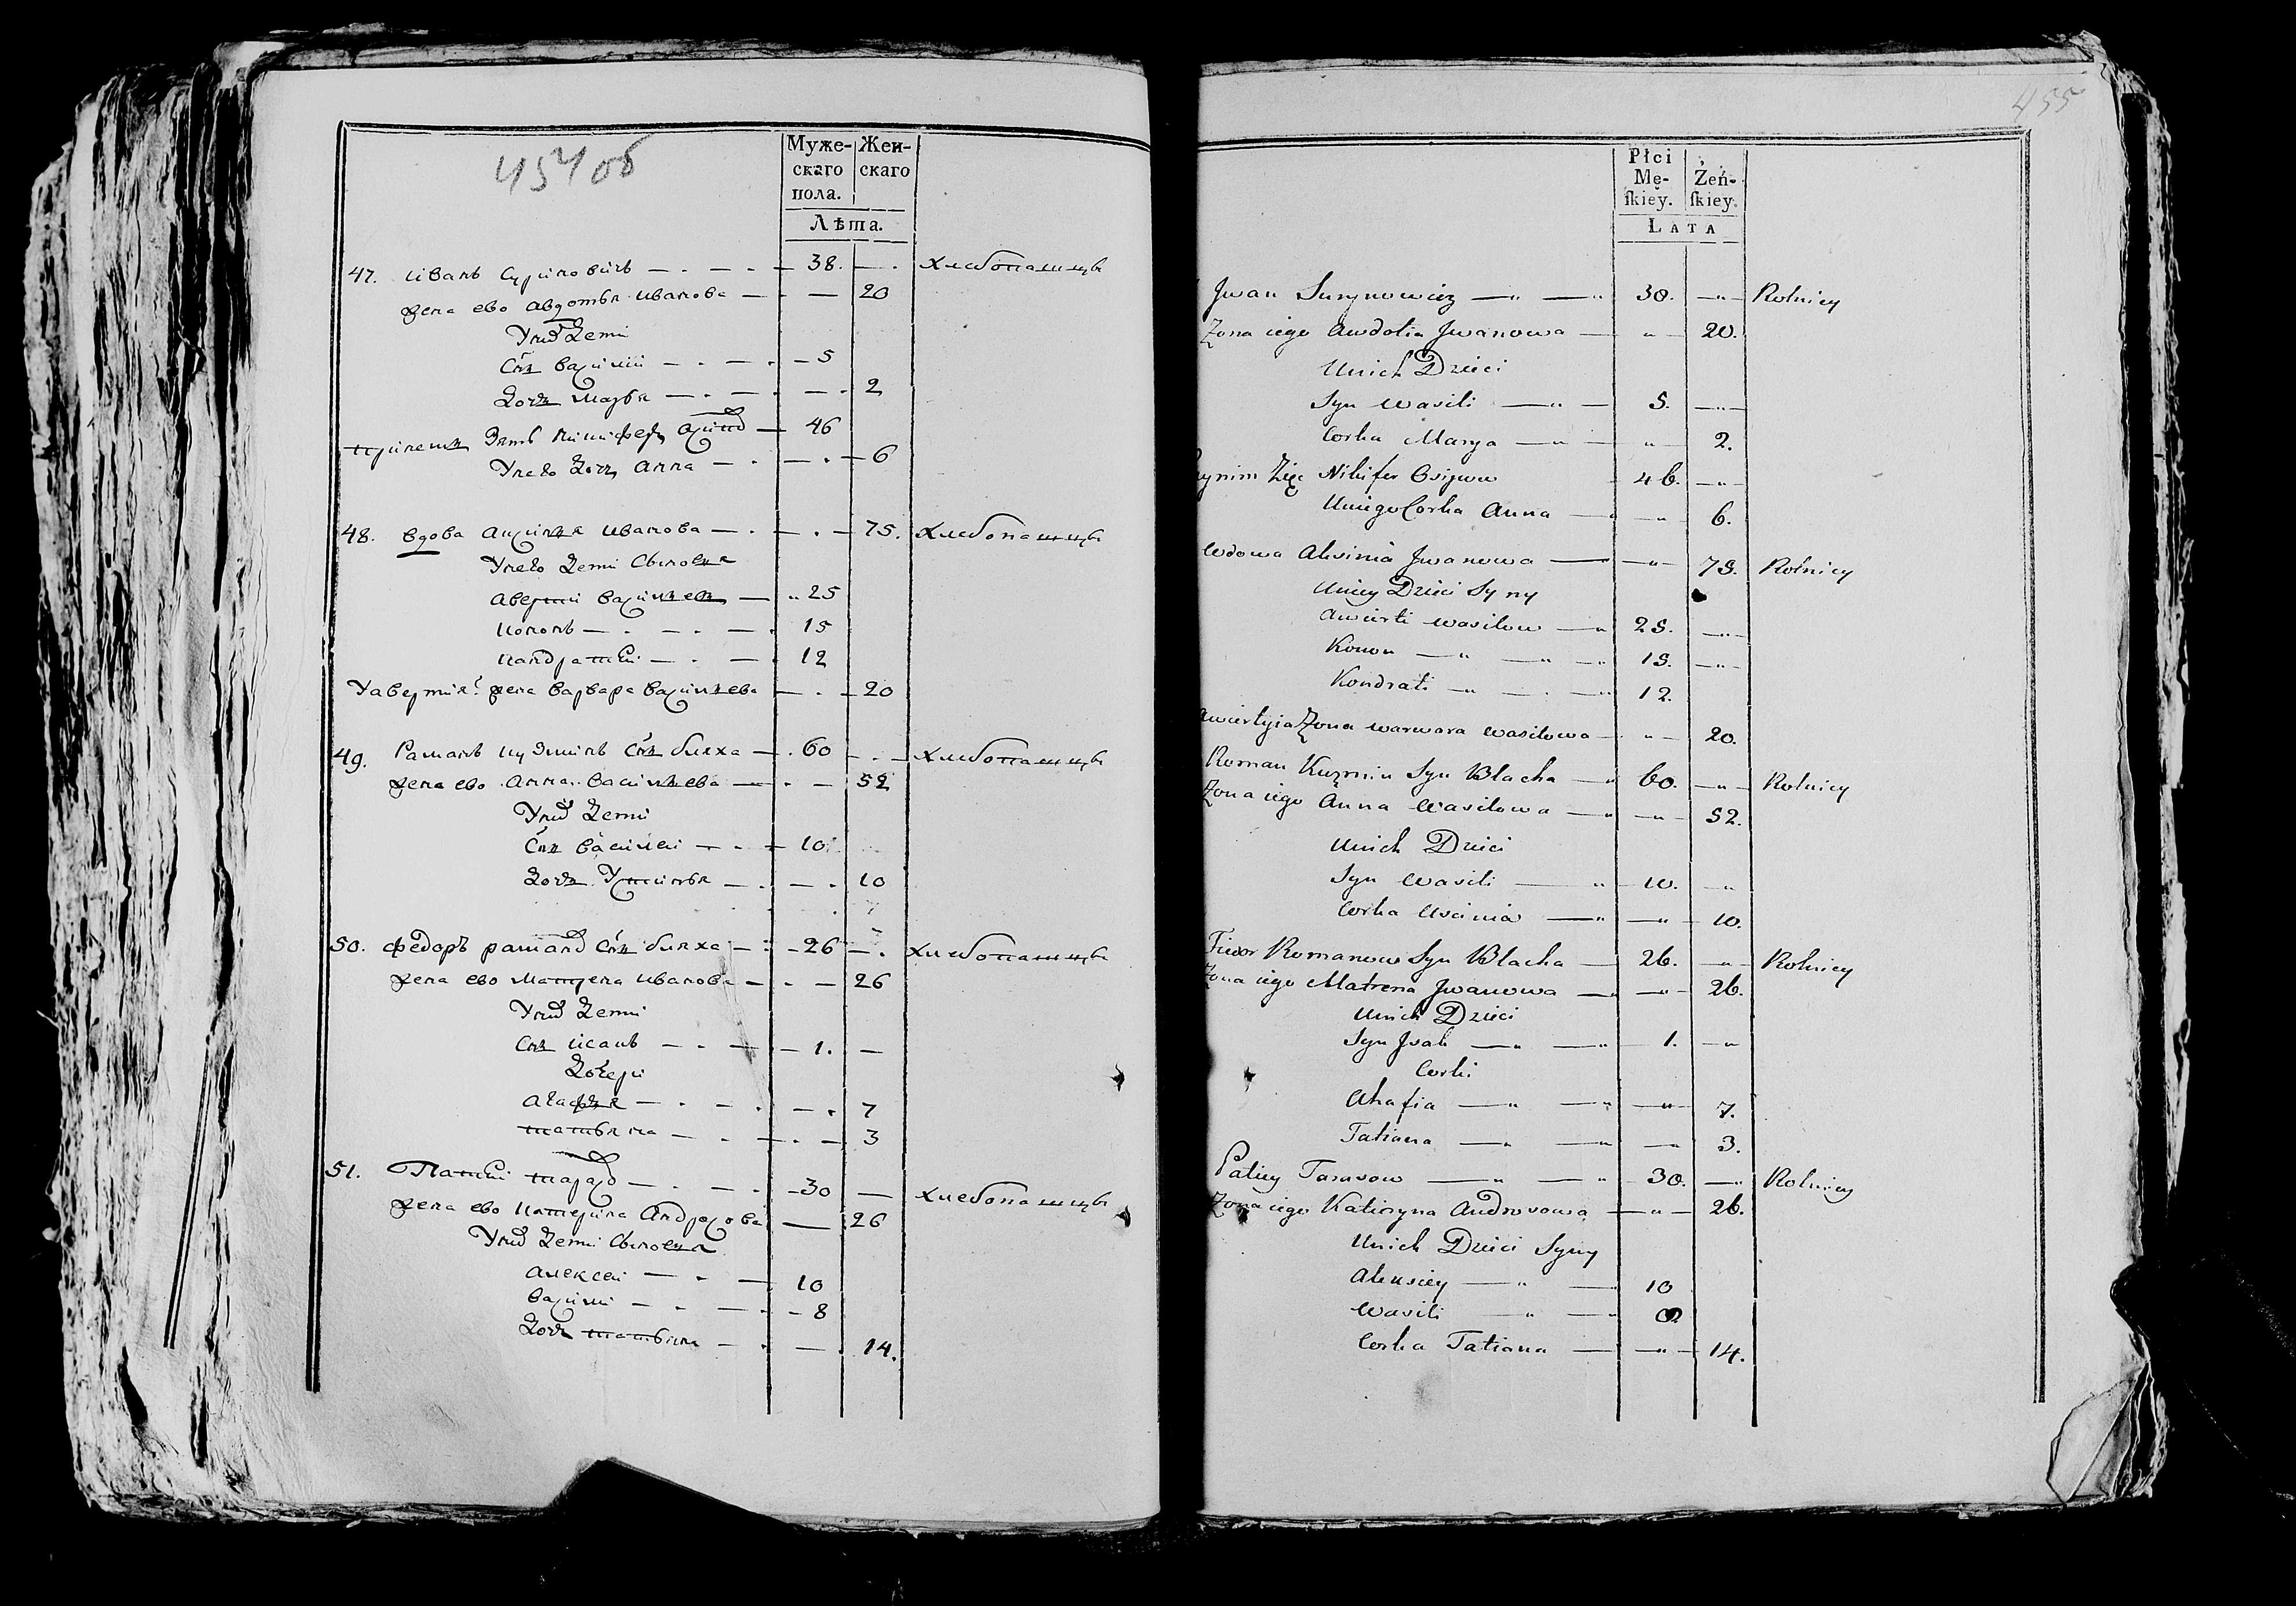 454об
Муже-
скаго
пола.
Жен-
скаго
Лѣта.
47. иванъ Суриновичъ — 38. — хлебопашцы
жена ево авдотья иванова — 20
У них дети
Снъ василий — 5
Дочъ марья — 2
зять никифоръ — 46
У него дочъ анна — 6
48. вдова аксинья иванова — 75. хлебопашцы
У нее дети Сыновья
аверкий васильевъ — 25
кононъ — 15
кандратий — 12
жена варвара васильева — 20
49. Раманъ кузминъ Снъ бляха — 60 — хлебопашцы
жена ево анна васильева — 52
У них дети
Снъ василей — 10
Дочъ Устинья — 10
50. федоръ раманов Снъ бляха — 26 — хлебопашцы
жена ево матрена иванова — 26
У них дети
Снъ исакъ — 1. —
Дочери
агафья — 7
татьяна — 3
51. Патий тарасов — 30 — хлебопашцы
жена ево катерина андросова — 26
У них дети Сыновья
алексей — 10
василий — 8
Дочъ татьяна — 14.
455
Płci
Mę-
ſkiey.
Żeń-
ſkiey.
LATA
Jwan Surynowicz — 38. — Rolnicy
Zona iego Awdotia Jwanowa — 20.
Unich Dzieci
Syn Wasili — 5. —
Corka Marya — 2.
Zięc Nikifor Osipow 46. —
Uniego Corka Anna — 6.
Wdowa Aksinia Jwanowa — 75. Rolnicy
Uniey Dzieci Syny
Awierki Wasilow — 25. —
Konon — 15. —
Kondrati — 12.
Zona Warwara Wasilowa — 20.
Roman Kuzmin Syn Blacha — 60. — Rolnicy
Zona iego Anna Wasilowa — 52.
Unich Dzieci
Syn Wasili — 10. —
Corka Uscinia — 10.
Fiedor Romanow Syn Blacha — 26. — Rolnicy
Zona iego Matrena Jwanowa — 26.
Unich Dzieci
Syn Jsak — 1. —
Corki
Ahafia — 7.
Tatiana — 3.
Patiey Tarasow — 30. — Rolnicy
Zona iego Katieryna Androsowa — 26.
Unich Dzieci Syny
Aleksiey — 10
Wasili — 8
Corka Tatiana — 14.